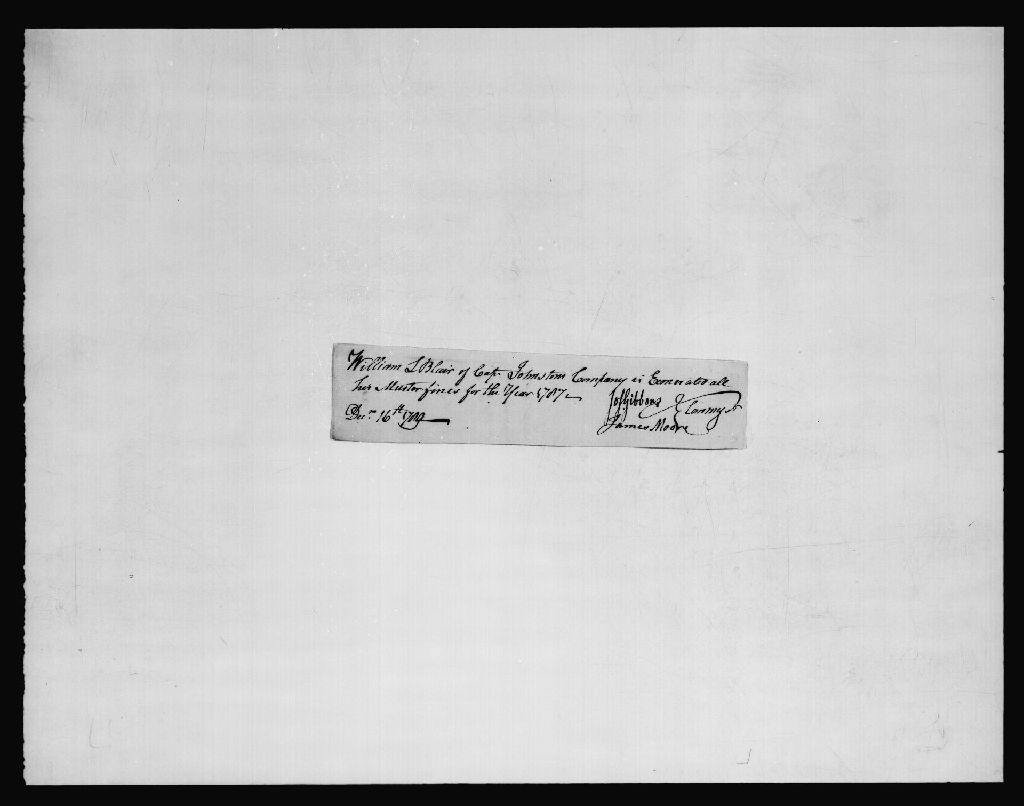 William L Blair of Capt. Johnstons Company is Exonerated all
his Muster fines for the Year 1787
Jos Gibbons
Decr. 16th 1789
James Moore